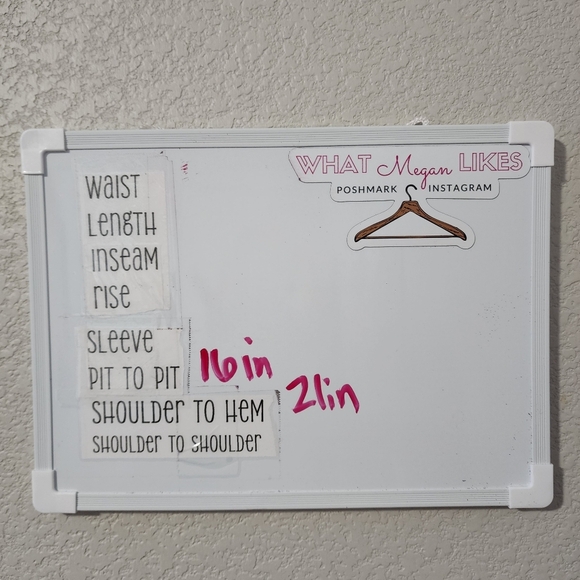 WHAT Megan LIKES
POSHMARK INSTAGRAM
WAIST
LENGTH
INSEAM
RISE
SLEEVE
PIT TO PIT 16 in
SHOULDER TO HEM 21in
SHOULDER TO SHOULDER